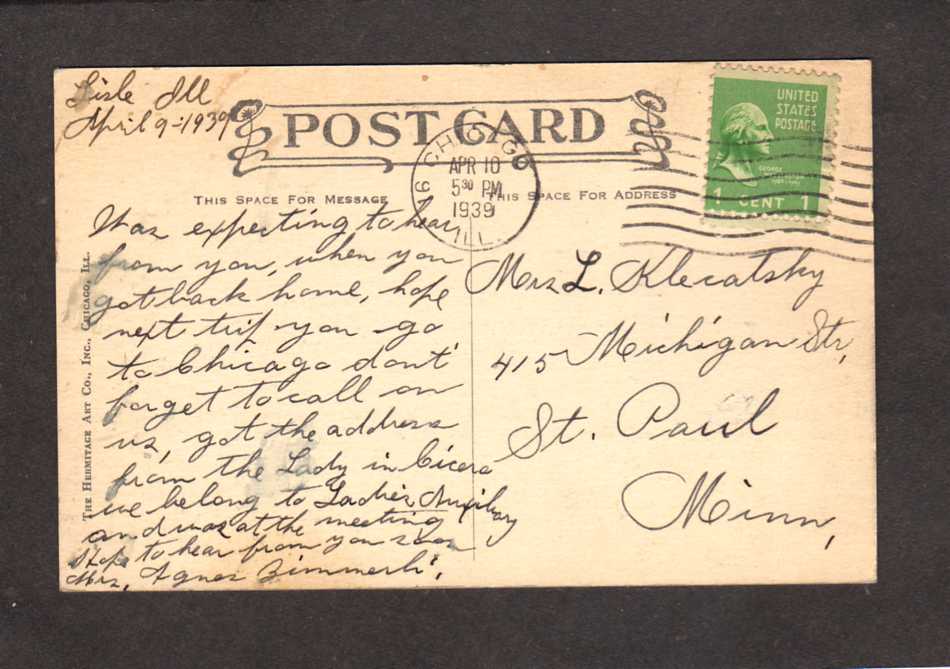 Lisle Ill
April 9-1939
POST CARD
CHICAGO
APR 10
5 30 PM
1939
ILL.
9
UNITED
STATES
POSTAGE
GEORGE
1 CENT 1
THIS SPACE FOR MESSAGE
THIS SPACE FOR ADDRESS
Was expecting to hear
from you, when you
got back home, hope
next trip you go
to Chicago don't
forget to call on
us, got the address
from the Lady in Cicero
we belong to Ladies Auxiliary
and was at the meeting
Hope to hear from you soon
Mrs, Agnes Zimmerli,
Mrs L. Klecatsky
415 Michigan Str,
St. Paul
Minn,
THE HERMITAGE ART CO., INC., CHICAGO, ILL.